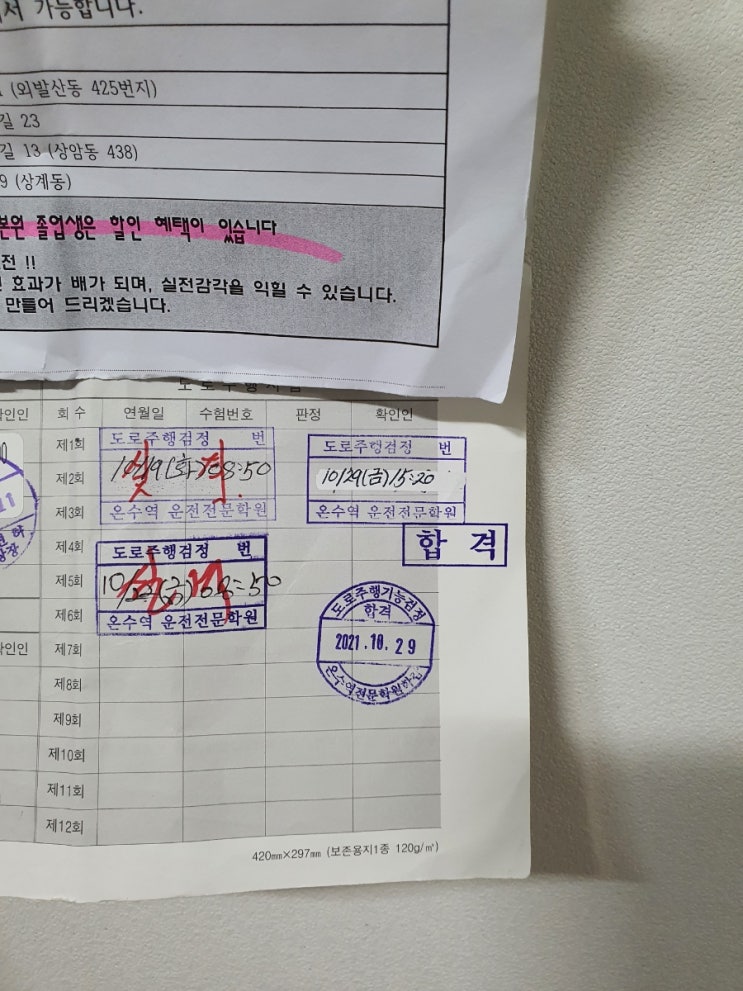 가능합니다.
(외발산동 425번지)
길 23
길 13 (상암동 438)
9 (상계동)
본원 졸업생은 할인 혜택이 있습니다
전 !!
효과가 배가 되며, 실전감각을 익힐 수 있습니다.
만들어 드리겠습니다.
도로주행시험
확인인 회 수 연월일 수험번호 판정 확인인
제1회
제2회
제3회
제4회
제5회
제6회
제7회
제8회
제9회
제10회
제11회
제12회
도로주행검정 번
10/19(화) 08:50
실격
온수역 운전전문학원
도로주행검정 번
10/22(금) 08:50
실격
온수역 운전전문학원
도로주행검정 번
10/29(금) 15:20
온수역 운전전문학원
합 격
도로주행기능검정
합격
2021.10.29
온수역전문학원
확인인
420㎜×297㎜ (보존용지1종 120g/㎡)